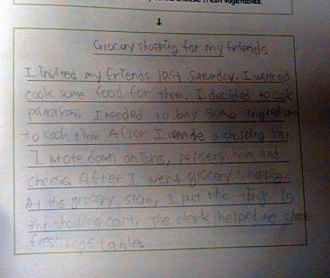 choose fresh vegetables.
Grocery shopping for my friends
I invited my friends last Saturday. I wanted
cook some food for them. I decided to cook
I needed to buy some
to cook them After I made a shopping list
I wrote down onions, peppers, ham and
cheese. After I went grocery shopping.
At the grocery store, I put the things in
the shopping cart. The clerk helped me
fresh vegetables